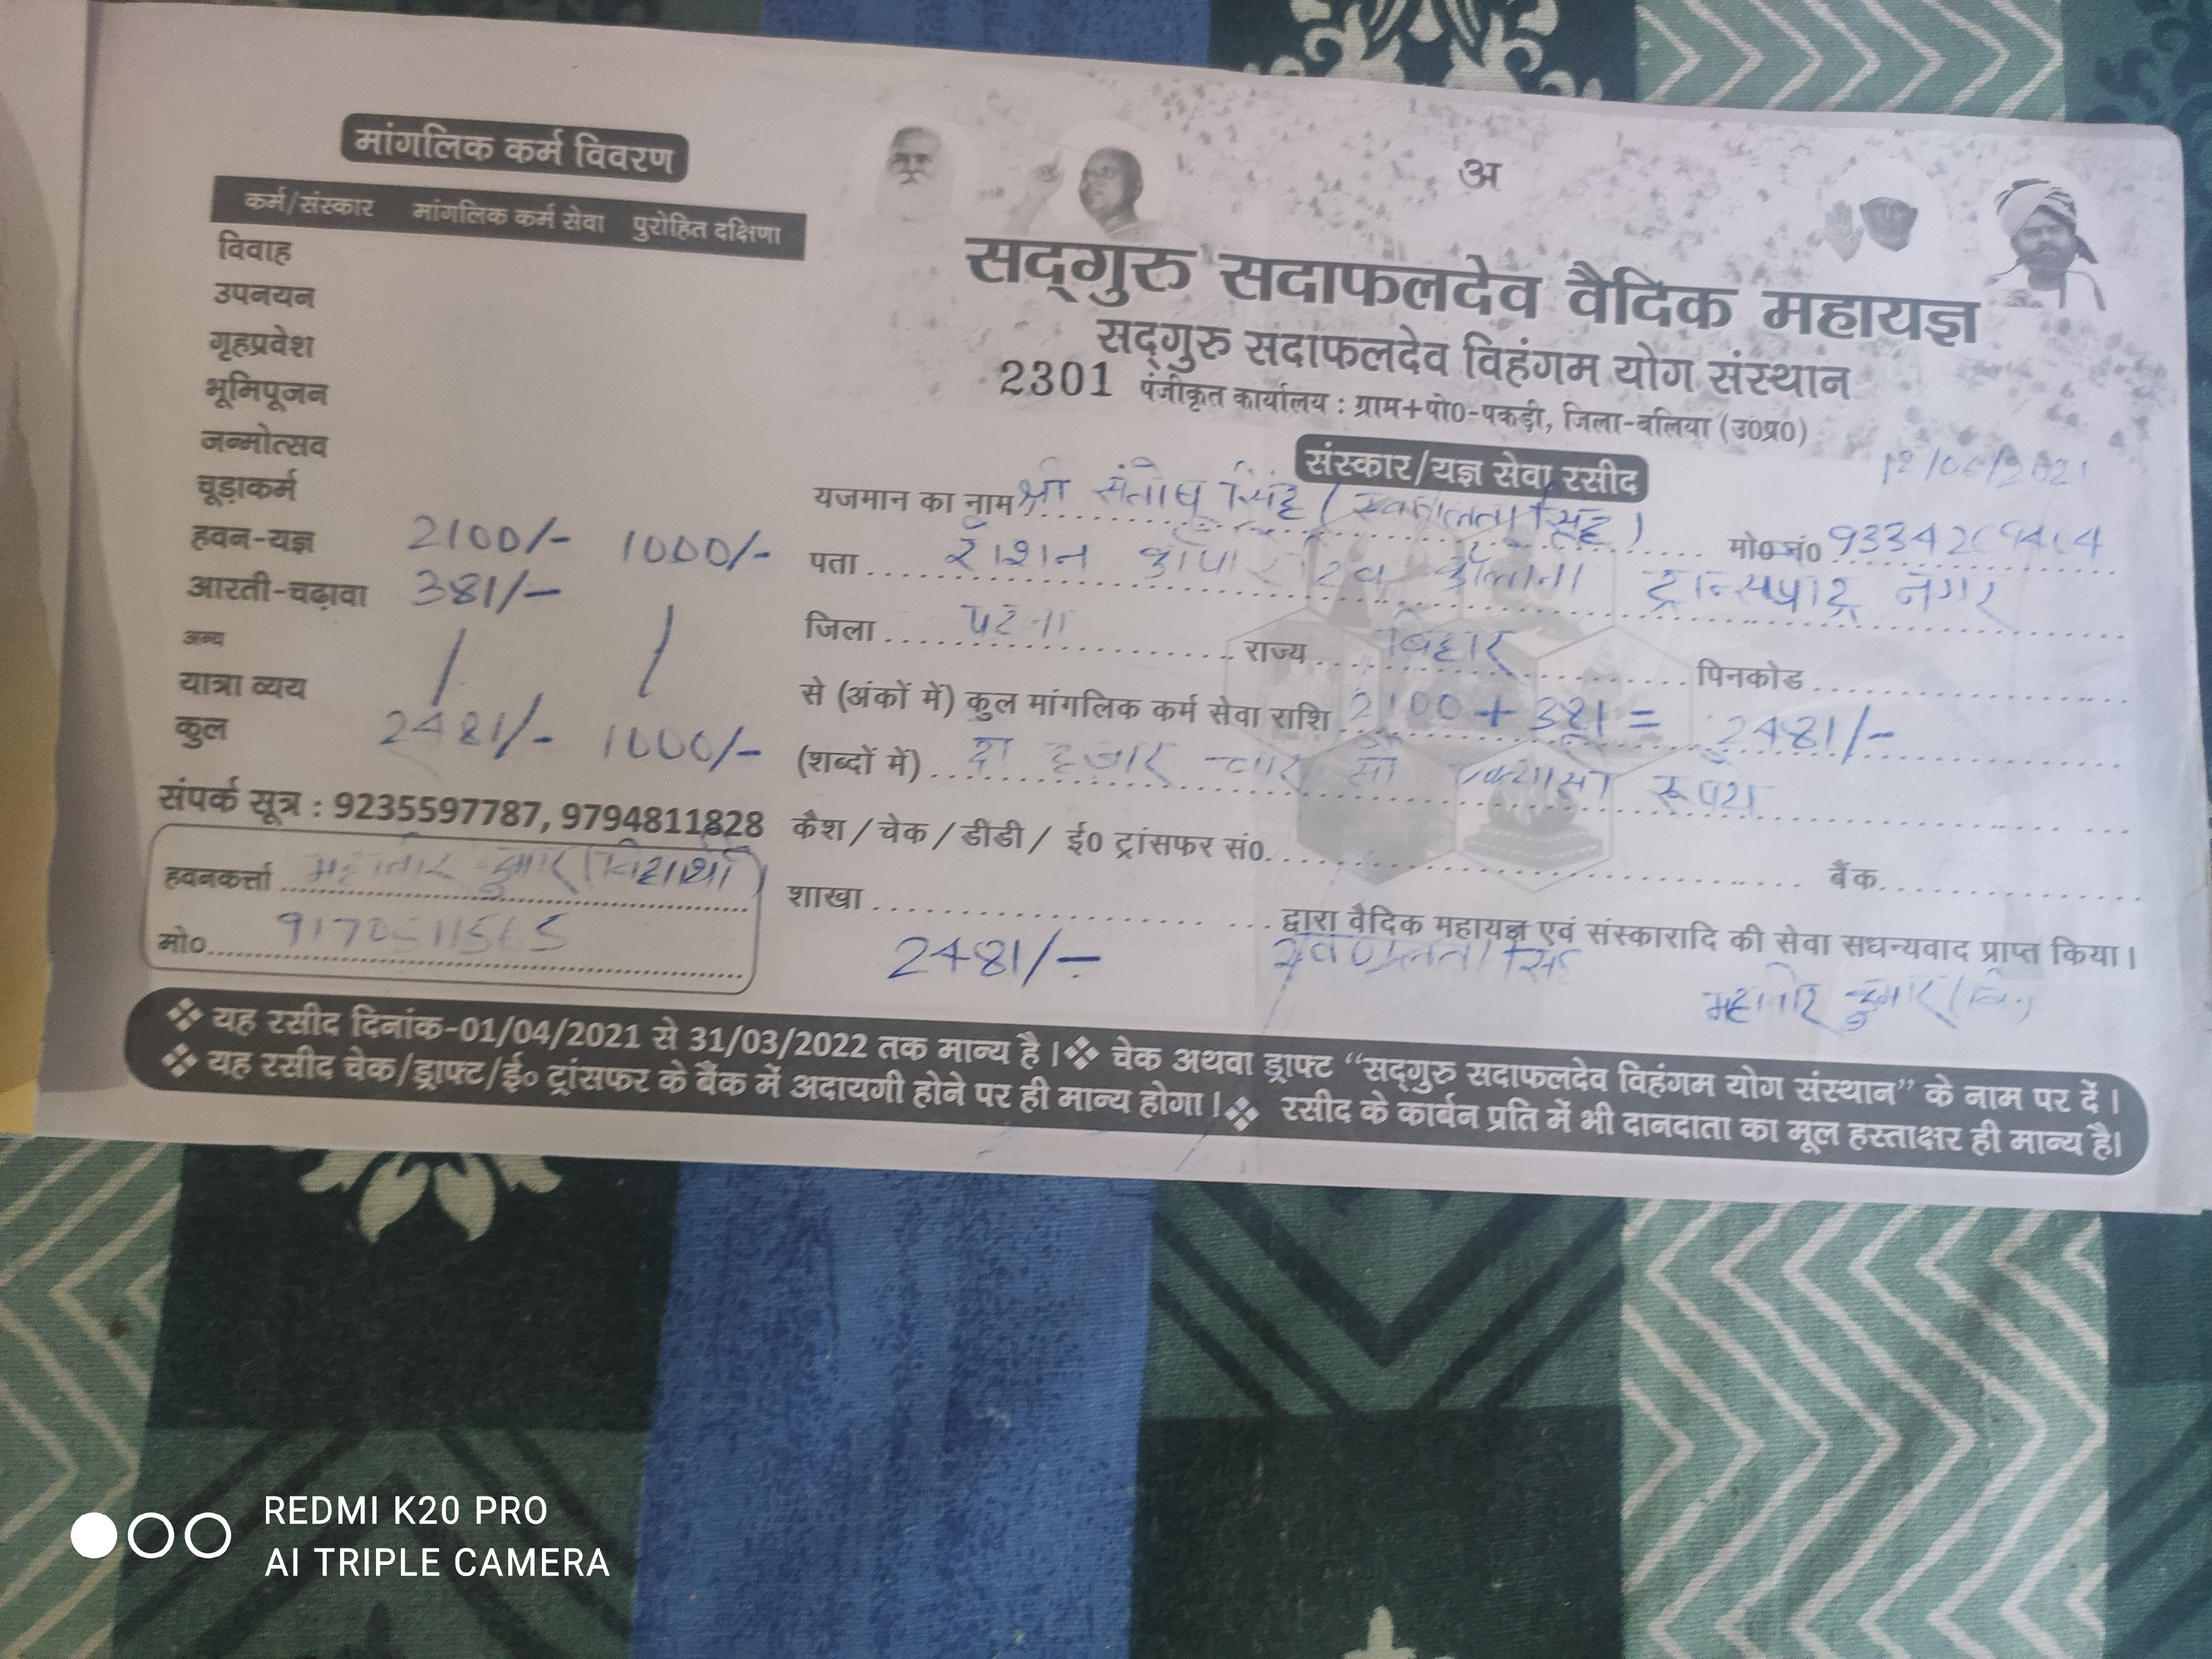 मांगलिक कर्म विवरण
कर्म/संस्कार मांगलिक कर्म सेवा पुरोहित दक्षिणा
विवाह
उपनयन
गृहप्रवेश
भूमिपूजन
जन्मोत्सव
चूड़ाकर्म
हवन-यज्ञ 2100/- 1000/-
आरती-चढ़ावा 381/-
अन्य
यात्रा व्यय
कुल 2481/- 1000/-
संपर्क सूत्र : 9235597787, 9794811828
हवनकर्त्ता महावीर कुमार (विद्यार्थी)
मो०
अ
सद्गुरु सदाफलदेव वैदिक महायज्ञ
सद्गुरु सदाफलदेव विहंगम योग संस्थान
2301 पंजीकृत कार्यालय : ग्राम+पो०-पकड़ी, जिला-बलिया (उ०प्र०)
संस्कार/यज्ञ सेवा रसीद
12/06/2021
यजमान का नाम श्री संतोष सिंह (स्वर्णलता सिंह) मो०नं०
पता राशन कोपरेटिव कॉलोनी ट्रान्सपोर्ट नगर
जिला पटना राज्य बिहार पिनकोड
से (अंकों में) कुल मांगलिक कर्म सेवा राशि 2100 + 381 = 2481/-
(शब्दों में) दो हजार चार सौ एक्यासी रूपये
कैश / चेक / डीडी / ई० ट्रांसफर सं० बैंक
शाखा द्वारा वैदिक महायज्ञ एवं संस्कारादि की सेवा सधन्यवाद प्राप्त किया।
2481/- स्वर्णलता सिंह महावीर कुमार
❖ यह रसीद दिनांक-01/04/2021 से 31/03/2022 तक मान्य है। ❖ चेक अथवा ड्राफ्ट “सद्गुरु सदाफलदेव विहंगम योग संस्थान” के नाम पर दें।
❖ यह रसीद चेक/ड्राफ्ट/ई० ट्रांसफर के बैंक में अदायगी होने पर ही मान्य होगा। ❖ रसीद के कार्बन प्रति में भी दानदाता का मूल हस्ताक्षर ही मान्य है।
REDMI K20 PRO
AI TRIPLE CAMERA